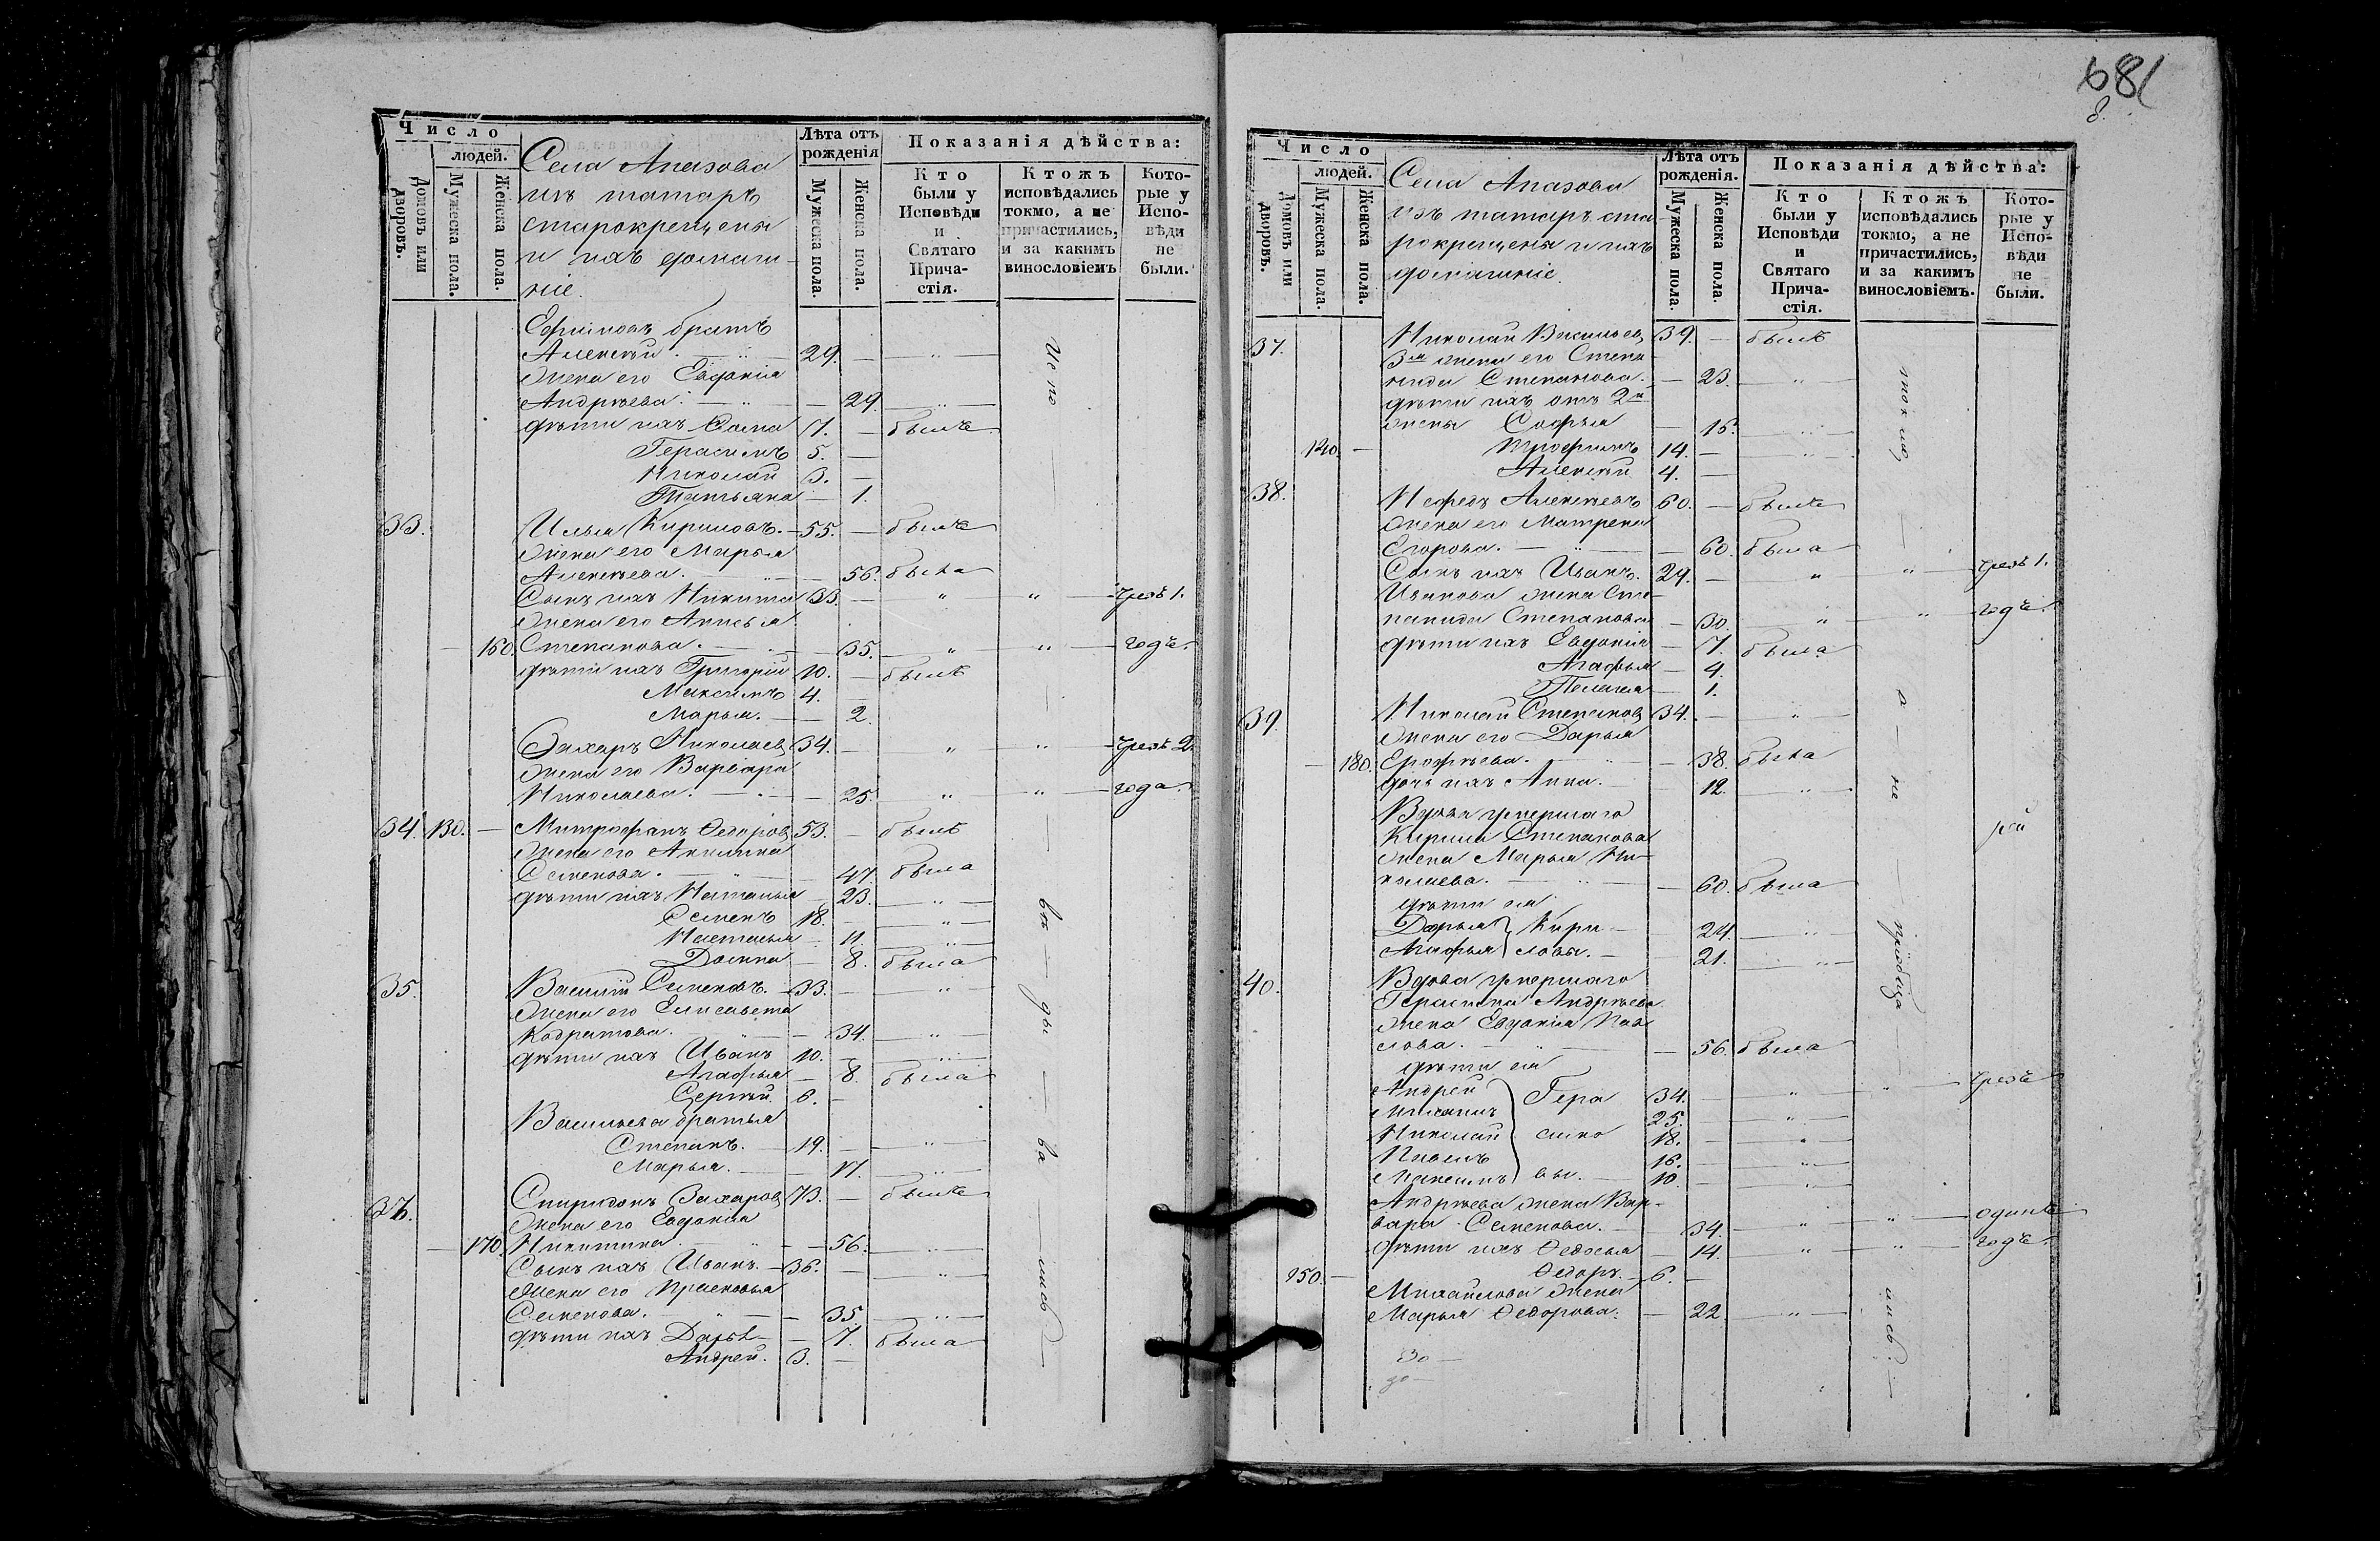 Число
людей.
Домовъ или дворовъ.
Мужеска пола.
Женска пола.
Села Апазова
изъ татаръ
старокрещены
и ихъ домаш-
ніе.
Лѣта отъ рожденія
Мужеска пола.
Женска пола.
Показанія дѣйства:
Кто были у Исповѣди и Святаго Прича-стія.
Ктожъ исповѣдались токмо, а не причастились, и за какимъ винословіемъ
Кото-рые у Испо-вѣди не были.
Ефимовъ братъ
Алексѣй. 29. —
Жена его Евдокія
Андрѣева. — 29.
дѣти ихъ Савва 7. — былъ
Герасимъ 5. —
Николай 3. —
Татьяна — 1.
33. Илья Кириловъ. 55. — былъ
Жена его Марья
Алексѣева. — 56. была
Сынъ ихъ Никита 33. — " " чрезъ 1.
Жена его Анисья
— 160. Степанова. — 35. " " годъ.
дѣти ихъ Григорій 10. — былъ
Максимъ 4. —
Марья. — 2.
Захаръ Николаев 34. — " " чрезъ 2.
Жена его Варвара
Николаева. — 25. " " года.
34. 130. — Митрофанъ Ѳедоров 53. — былъ
Жена его Акилина
Семенова. — 47. была
дѣти ихъ Наталья — 23. "
Семенъ 18. "
Настасья — 11. "
Домна — 8. была
35. Василій Семеновъ. 33. — "
Жена его Елисавета
Кодратова. — 34. "
дѣти ихъ Иванъ 10. — "
Агафья — 8. была
Сергѣй. 6. —
Васильева братья
Степанъ. 19. — "
Марья. — 17. "
36. Спиридонъ Захаров 73. — былъ
Жена его Евдокія
— 170. Никитина. — 56. "
Сынъ ихъ Иванъ. 36. — "
Жена его Прасковья
Семенова. — 35. "
дѣти ихъ Дарья — 7. была
Андрей. 3. —
Испо — вѣ — ды — ва — лись
681
Число
людей.
Домовъ или дворовъ.
Мужеска пола.
Женска пола.
Села Апазова
изъ татаръ ста-
рокрещены и ихъ
домашніе.
Лѣта отъ рожденія.
Мужеска пола.
Женска пола.
Показанія дѣйства:
Кто были у Исповѣди и Святаго Прича-стія.
Ктожъ исповѣдались токмо, а не причастились, и за какимъ винословіемъ.
Кото-рые у Испо-вѣди не были.
37. Николай Васильев 39. — былъ
3я жена его Степа-
нида Степанова. — 23. "
дѣти ихъ отъ 2й
жены Софья — 16. "
140. — Трофимъ 14. — "
Алексѣй 4. —
38. Нефедъ Алексѣевъ 60. — былъ
Жена его Матрена
Егорова. — 60. была
Сынъ ихъ Иванъ. 29. — " " чрезъ 1.
Иванова жена Сте-
панида Степанова — 30. " " годъ.
дѣти ихъ Евдокія — 7. была
Агафья — 4.
Пелагея — 1.
39. Николай Степанов 34. — "
Жена его Дарья
— 180. Ерофѣева. — 38. была
дочь ихъ Анна. — 12. "
Вдова умершаго
Кирила Степанова
Жена Марья Ни-
колаева. — 60. была
дѣти ея
Дарья } Кири — 24. "
Агафья } ловы. — 21. "
40. Вдова умершаго
Герасима Андрѣева
Жена Евдокія Пав
лова. — 56. была
дѣти ея
Андрей } Гера 34. — " " чрезъ
Михаилъ 25. "
Николай } симо 18. — "
Павелъ 16. — "
Максимъ } вы. 10. — "
Андрѣева жена Вар-
вара Семенова. — 34. " " одинъ
дѣти ихъ Ѳедосья — 14. " " годъ.
150. — Ѳедоръ. 6. —
Михайлова жена
Марья Ѳедорова. — 22. "
токмо — а — не — пріобща — лись.